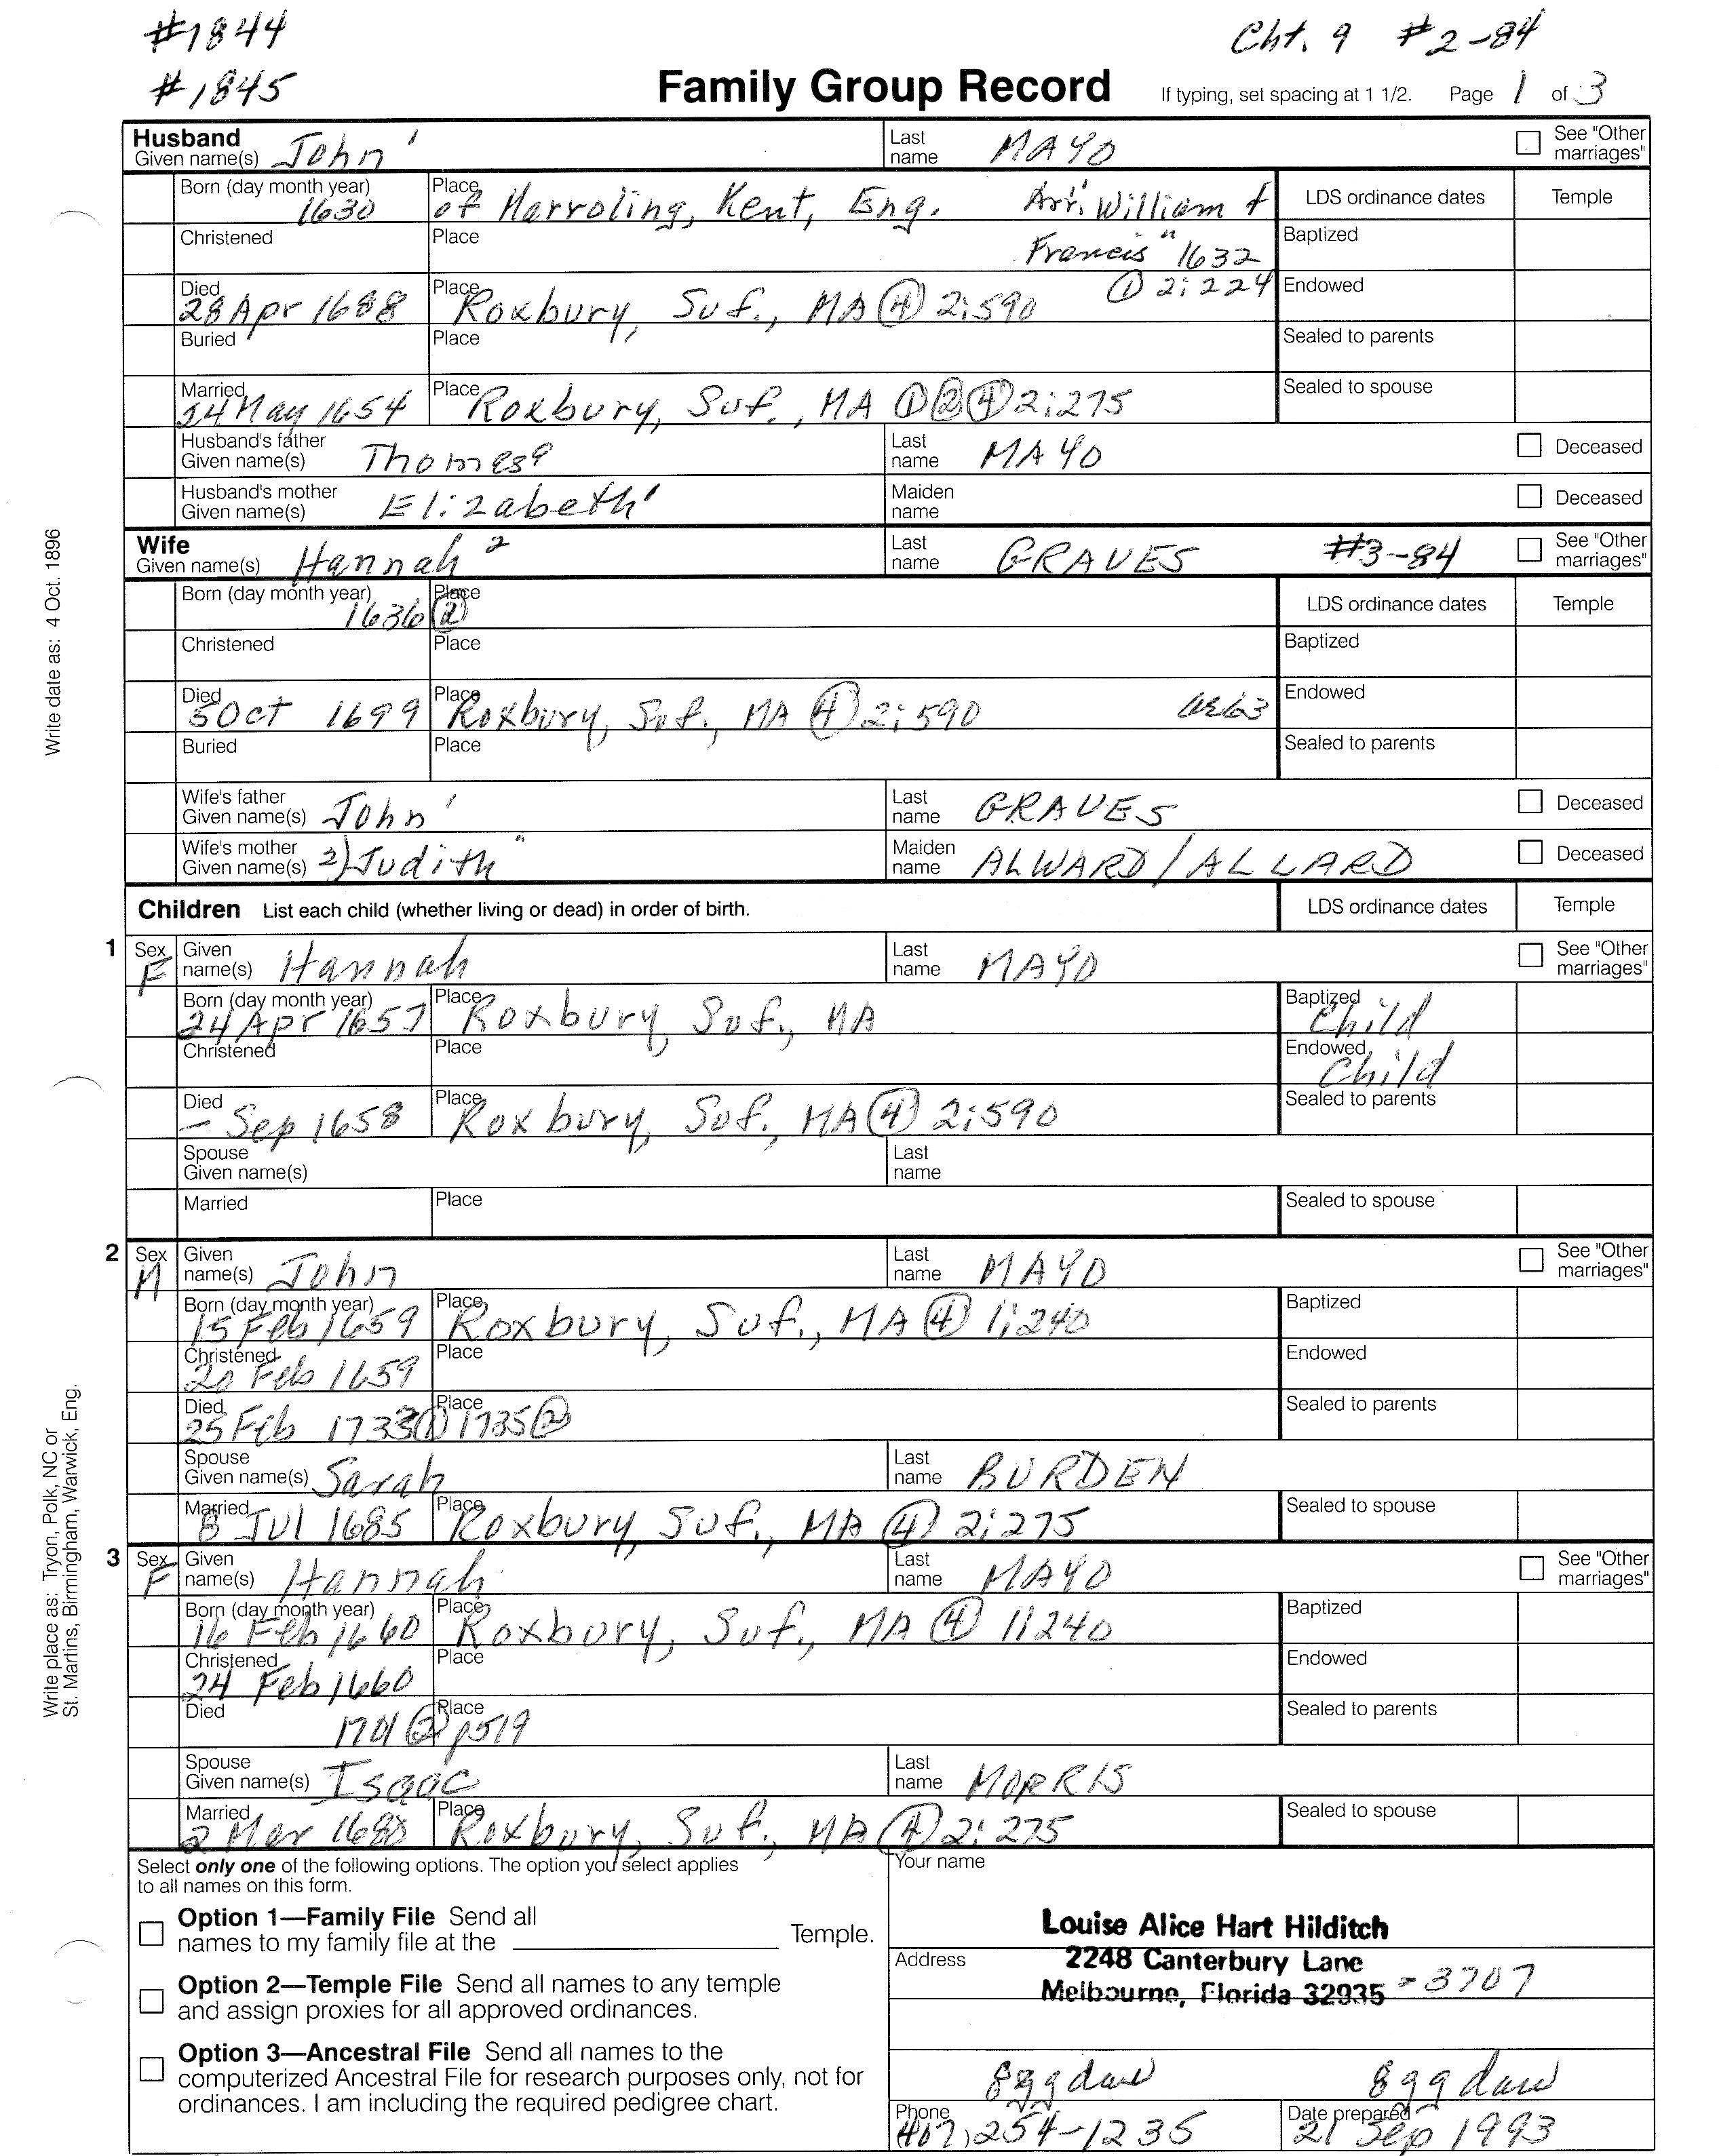 #1844
Cht. 9 #2-84
#1845
Family Group Record If typing, set spacing at 1 1/2. Page 1 of 3
Husband
Given name(s) John ' Last name MAYO See "Other marriages"
Born (day month year) 1630 Place of Harroling, Kent, Eng. Arr. William & LDS ordinance dates Temple
Christened Place Francis" 1632 Baptized
Died 28 Apr 1688 Place Roxbury, Suf., MA (4) 2:590 (1) 2:224 Endowed
Buried Place Sealed to parents
Married 24 May 1654 Place Roxbury, Suf., MA (1)(2)(4) 2:275 Sealed to spouse
Husband's father
Given name(s) Thomas Last name MAYO Deceased
Husband's mother
Given name(s) Elizabeth' Maiden name Deceased
Wife
Given name(s) Hannah 2 Last name GRAVES #3-84 See "Other marriages"
Born (day month year) 1636 (2) Place LDS ordinance dates Temple
Christened Place Baptized
Died 5 Oct 1699 Place Roxbury, Suf., MA (4) 2:590 Endowed
Buried Place Sealed to parents
Wife's father
Given name(s) John ' Last name GRAVES Deceased
Wife's mother
Given name(s) 2) Judith " Maiden name ALWARD/ALLARD Deceased
Children List each child (whether living or dead) in order of birth. LDS ordinance dates Temple
1 Sex F Given name(s) Hannah Last name MAYO See "Other marriages"
Born (day month year) 24 Apr 1657 Place Roxbury, Suf., MA Baptized Child
Christened Place Endowed Child
Died - Sep 1658 Place Roxbury, Suf., MA (4) 2:590 Sealed to parents
Spouse
Given name(s) Last name
Married Place Sealed to spouse
2 Sex M Given name(s) John Last name MAYO See "Other marriages"
Born (day month year) 15 Feb 1659 Place Roxbury, Suf., MA (4) 1:240 Baptized
Christened 20 Feb 1659 Place Endowed
Died 25 Feb 1733 (1) 1735 (2) Place Sealed to parents
Spouse
Given name(s) Sarah Last name BURDEN
Married 8 Jul 1685 Place Roxbury, Suf., MA (4) 2:275 Sealed to spouse
3 Sex F Given name(s) Hannah Last name MAYO See "Other marriages"
Born (day month year) 16 Feb 1660 Place Roxbury, Suf., MA (4) 1:240 Baptized
Christened 24 Feb 1660 Place Endowed
Died 1701 (2) p519 Place Sealed to parents
Spouse
Given name(s) Isaac Last name MORRIS
Married 2 Mar 1680 Place Roxbury, Suf., MA (4) 2:275 Sealed to spouse
Select only one of the following options. The option you select applies
to all names on this form.
Option 1—Family File Send all
names to my family file at the Temple.
Option 2—Temple File Send all names to any temple
and assign proxies for all approved ordinances.
Option 3—Ancestral File Send all names to the
computerized Ancestral File for research purposes only, not for
ordinances. I am including the required pedigree chart.
Your name
Louise Alice Hart Hilditch
Address 2248 Canterbury Lane
Melbourne, Florida 32935 - 3707
8ggdau 8ggdau
Phone 407) 254-1235 Date prepared 21 Sep 1993
Write date as: 4 Oct. 1896
Write place as: Tryon, Polk, NC or
St. Martins, Birmingham, Warwick, Eng.